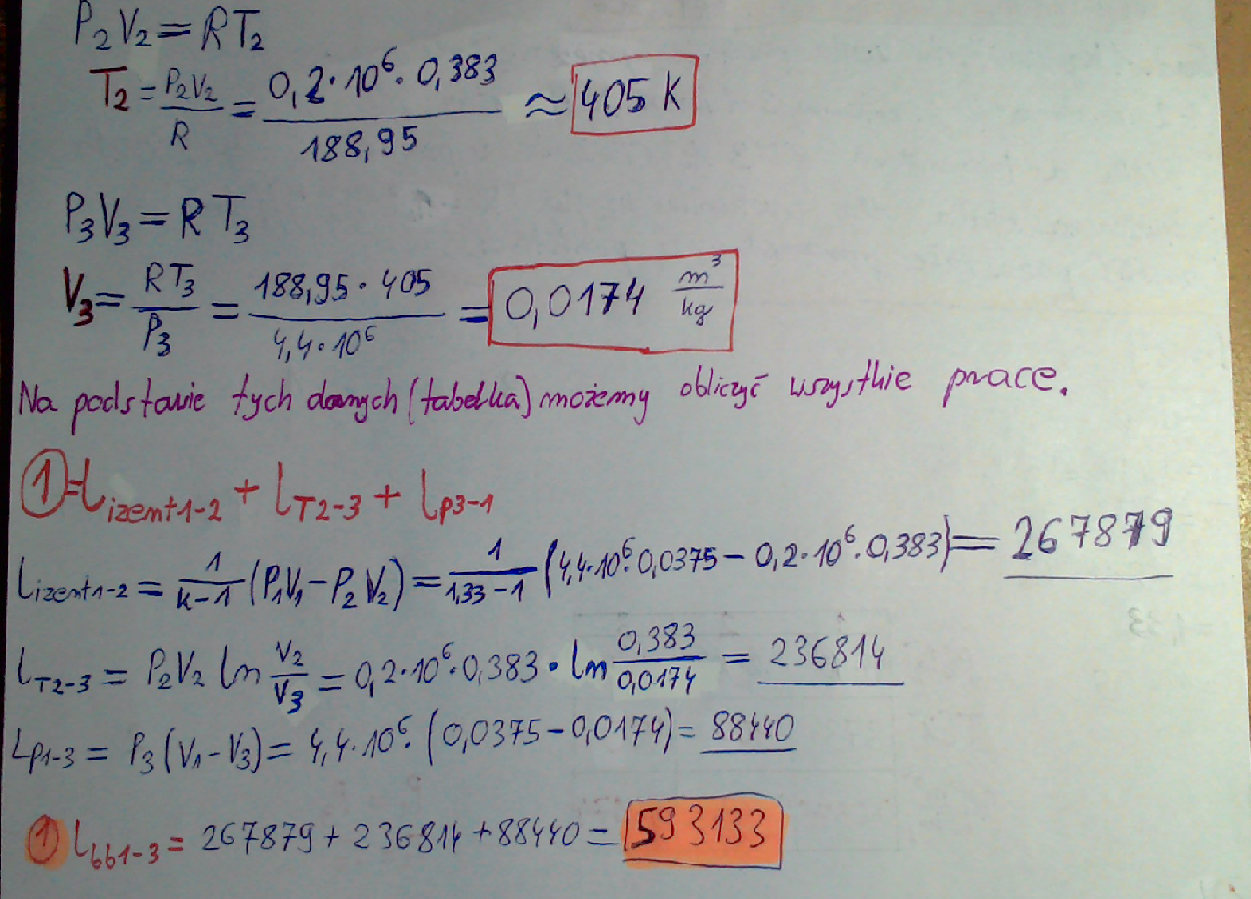 P₂V₂ = RT₂
T₂ = P₂V₂/R = 0,2·10⁶·0,383/188,95 ≈ 405 K
P₃V₃ = RT₃
V₃ = RT₃/P₃ = 188,95·405/4,4·10⁶ = 0,0174 m³/kg
Na podstawie tych danych (tabelka) możemy obliczyć wszystkie prace.
① = Lizent1-2 + LT2-3 + Lp3-1
Lizent1-2 = 1/k-1 (P₁V₁ - P₂V₂) = 1/1,33-1 (4,4·10⁶·0,0375 - 0,2·10⁶·0,383) = 267879
LT2-3 = P₂V₂ ln V₂/V₃ = 0,2·10⁶·0,383·ln 0,383/0,0174 = 236814
Lp1-3 = P₃(V₁-V₃) = 4,4·10⁶·(0,0375-0,0174) = 88440
① Lbb1-3 = 267879 + 236814 + 88440 = 593133